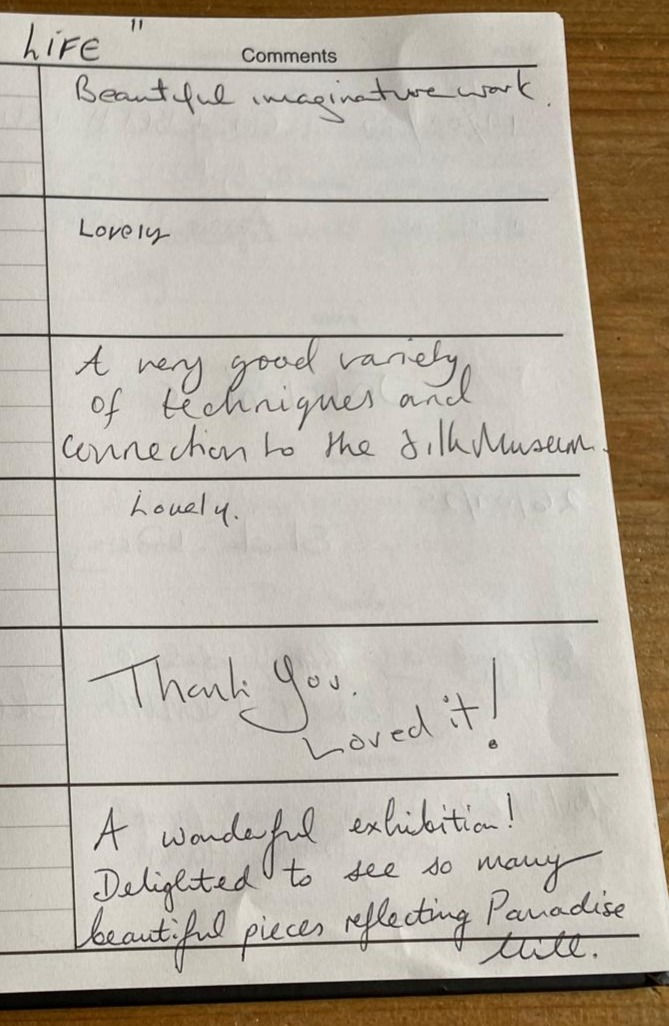 LIFE "
Comments
Beautiful imaginative work.
Lovely
A very good variety
of techniques and
connection to the Silk Museum.
Lovely.
Thank you.
Loved it!
A wonderful exhibition!
Delighted to see so many
beautiful pieces reflecting Paradise
Mill.